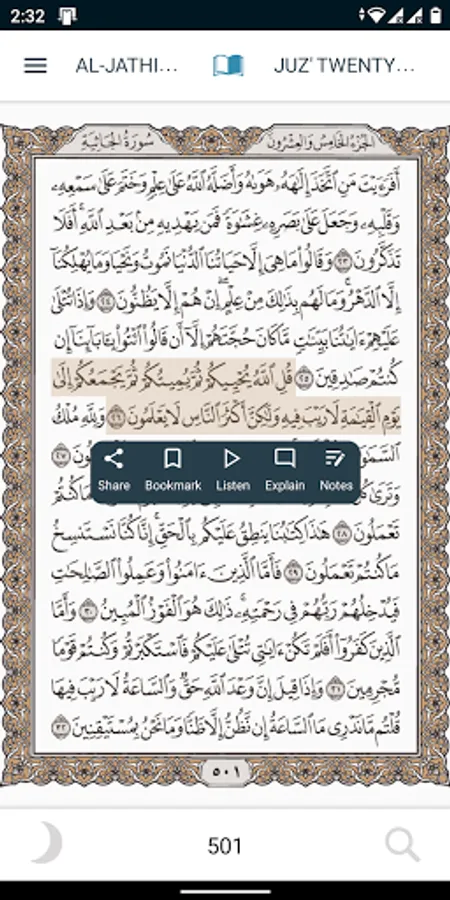 2:32
AL-JATHI... JUZ' TWENTY...
الجزء الخامس والعشرون سورة الجاثية
أَفَرَءَيْتَ مَنِ ٱتَّخَذَ إِلَٰهَهُۥ هَوَىٰهُ وَأَضَلَّهُ ٱللَّهُ عَلَىٰ عِلْمٍ وَخَتَمَ عَلَىٰ سَمْعِهِۦ
وَقَلْبِهِۦ وَجَعَلَ عَلَىٰ بَصَرِهِۦ غِشَٰوَةً فَمَن يَهْدِيهِ مِنۢ بَعْدِ ٱللَّهِ ۚ أَفَلَا
تَذَكَّرُونَ ٢٣ وَقَالُوا۟ مَا هِىَ إِلَّا حَيَاتُنَا ٱلدُّنْيَا نَمُوتُ وَنَحْيَا وَمَا يُهْلِكُنَآ
إِلَّا ٱلدَّهْرُ ۚ وَمَا لَهُم بِذَٰلِكَ مِنْ عِلْمٍ ۖ إِنْ هُمْ إِلَّا يَظُنُّونَ ٢٤ وَإِذَا تُتْلَىٰ
عَلَيْهِمْ ءَايَٰتُنَا بَيِّنَٰتٍ مَّا كَانَ حُجَّتَهُمْ إِلَّآ أَن قَالُوا۟ ٱئْتُوا۟ بِـَٔابَآئِنَآ إِن
كُنتُمْ صَٰدِقِينَ ٢٥ قُلِ ٱللَّهُ يُحْيِيكُمْ ثُمَّ يُمِيتُكُمْ ثُمَّ يَجْمَعُكُمْ إِلَىٰ
يَوْمِ ٱلْقِيَٰمَةِ لَا رَيْبَ فِيهِ وَلَٰكِنَّ أَكْثَرَ ٱلنَّاسِ لَا يَعْلَمُونَ ٢٦ وَلِلَّهِ مُلْكُ
Share Bookmark Listen Explain Notes
تَعْمَلُونَ ٢٨ هَٰذَا كِتَٰبُنَا يَنطِقُ عَلَيْكُم بِٱلْحَقِّ ۚ إِنَّا كُنَّا نَسْتَنسِخُ
مَا كُنتُمْ تَعْمَلُونَ ٢٩ فَأَمَّا ٱلَّذِينَ ءَامَنُوا۟ وَعَمِلُوا۟ ٱلصَّٰلِحَٰتِ
فَيُدْخِلُهُمْ رَبُّهُمْ فِى رَحْمَتِهِۦ ۚ ذَٰلِكَ هُوَ ٱلْفَوْزُ ٱلْمُبِينُ ٣٠ وَأَمَّا
ٱلَّذِينَ كَفَرُوٓا۟ أَفَلَمْ تَكُنْ ءَايَٰتِى تُتْلَىٰ عَلَيْكُمْ فَٱسْتَكْبَرْتُمْ وَكُنتُمْ قَوْمًا
مُّجْرِمِينَ ٣١ وَإِذَا قِيلَ إِنَّ وَعْدَ ٱللَّهِ حَقٌّ وَٱلسَّاعَةُ لَا رَيْبَ فِيهَا
قُلْتُم مَّا نَدْرِى مَا ٱلسَّاعَةُ إِن نَّظُنُّ إِلَّا ظَنًّا وَمَا نَحْنُ بِمُسْتَيْقِنِينَ ٣٢
٥٠١
501